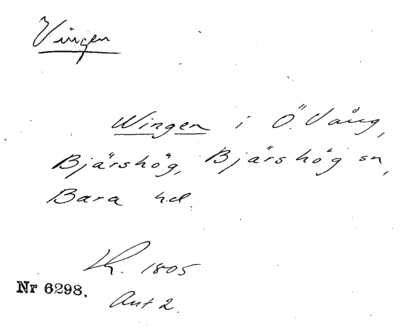 Vingen
Wingen i Ö. Vång,
Bjärshög, Bjärshög sn,
Bara hd.
LK. 1805
Nr 6298.
Akt 2.